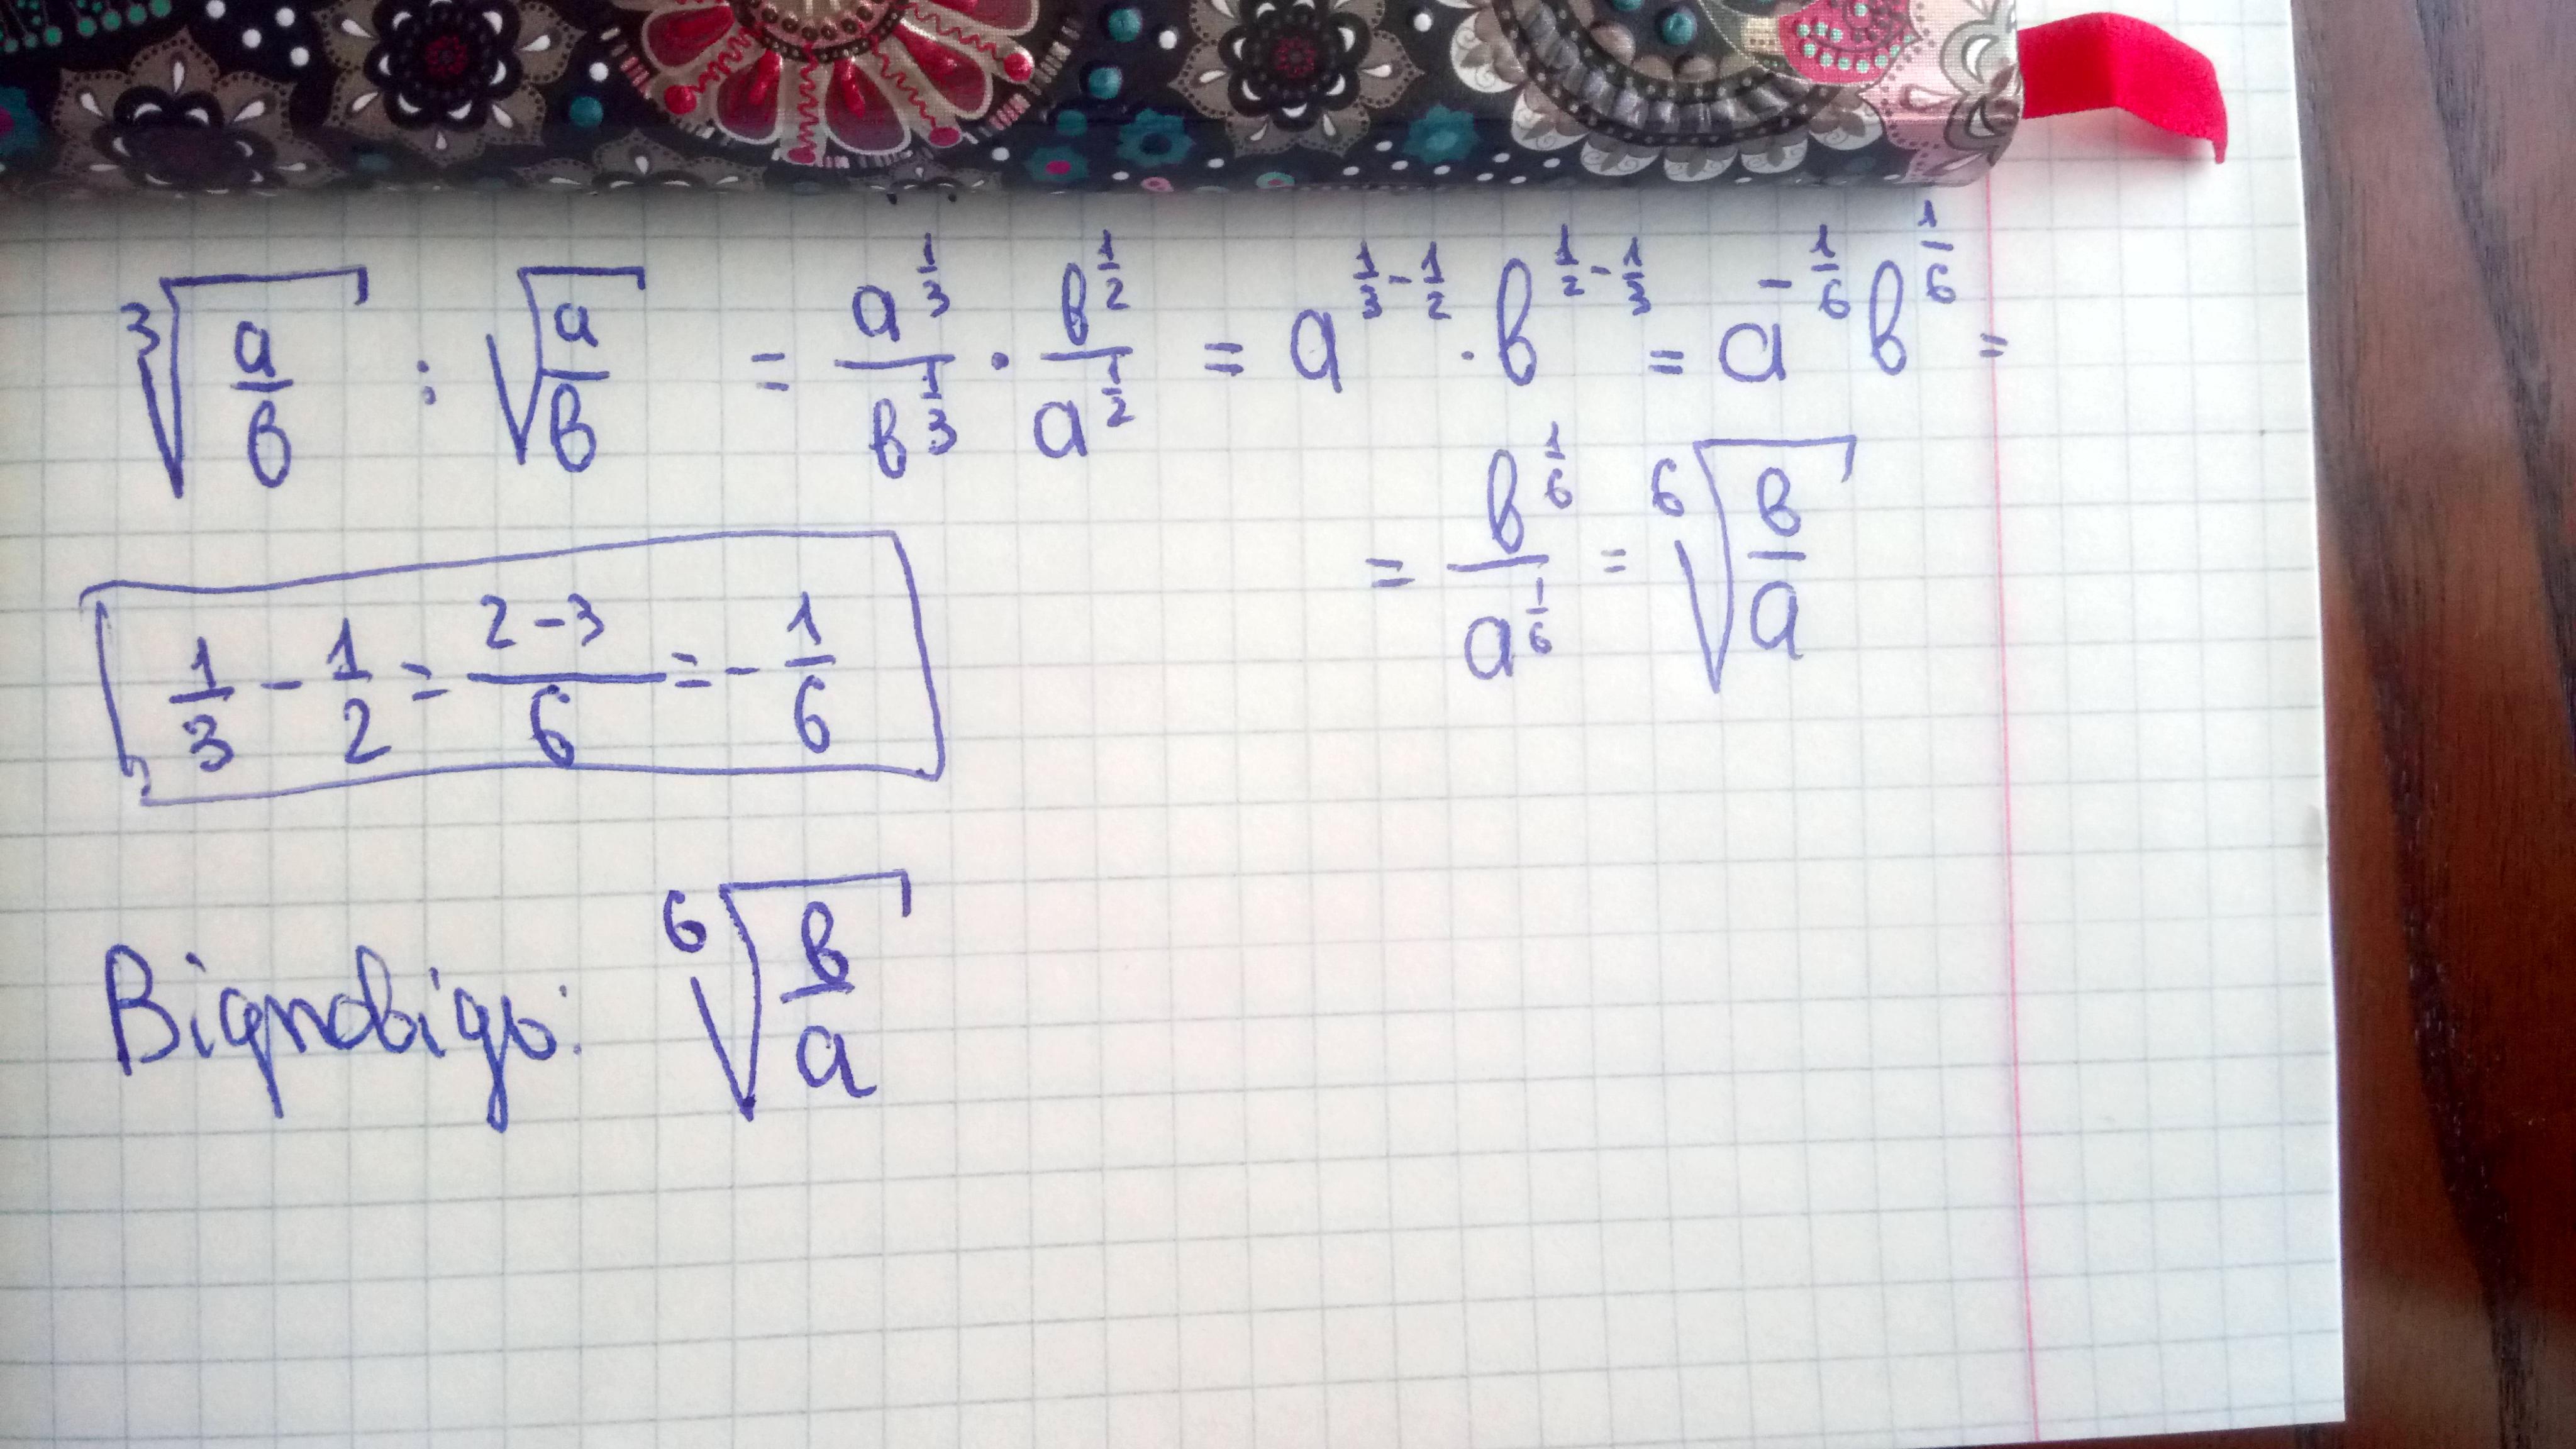 ∛(a/b) : √(a/b) = a^(1/3)/b^(1/3) · b^(1/2)/a^(1/2) = a^(1/3-1/2) · b^(1/2-1/3) = a^(-1/6) b^(1/6) =
= b^(1/6)/a^(1/6) = ⁶√(b/a)
1/3 - 1/2 = (2-3)/6 = -1/6
Відповідь: ⁶√(b/a)